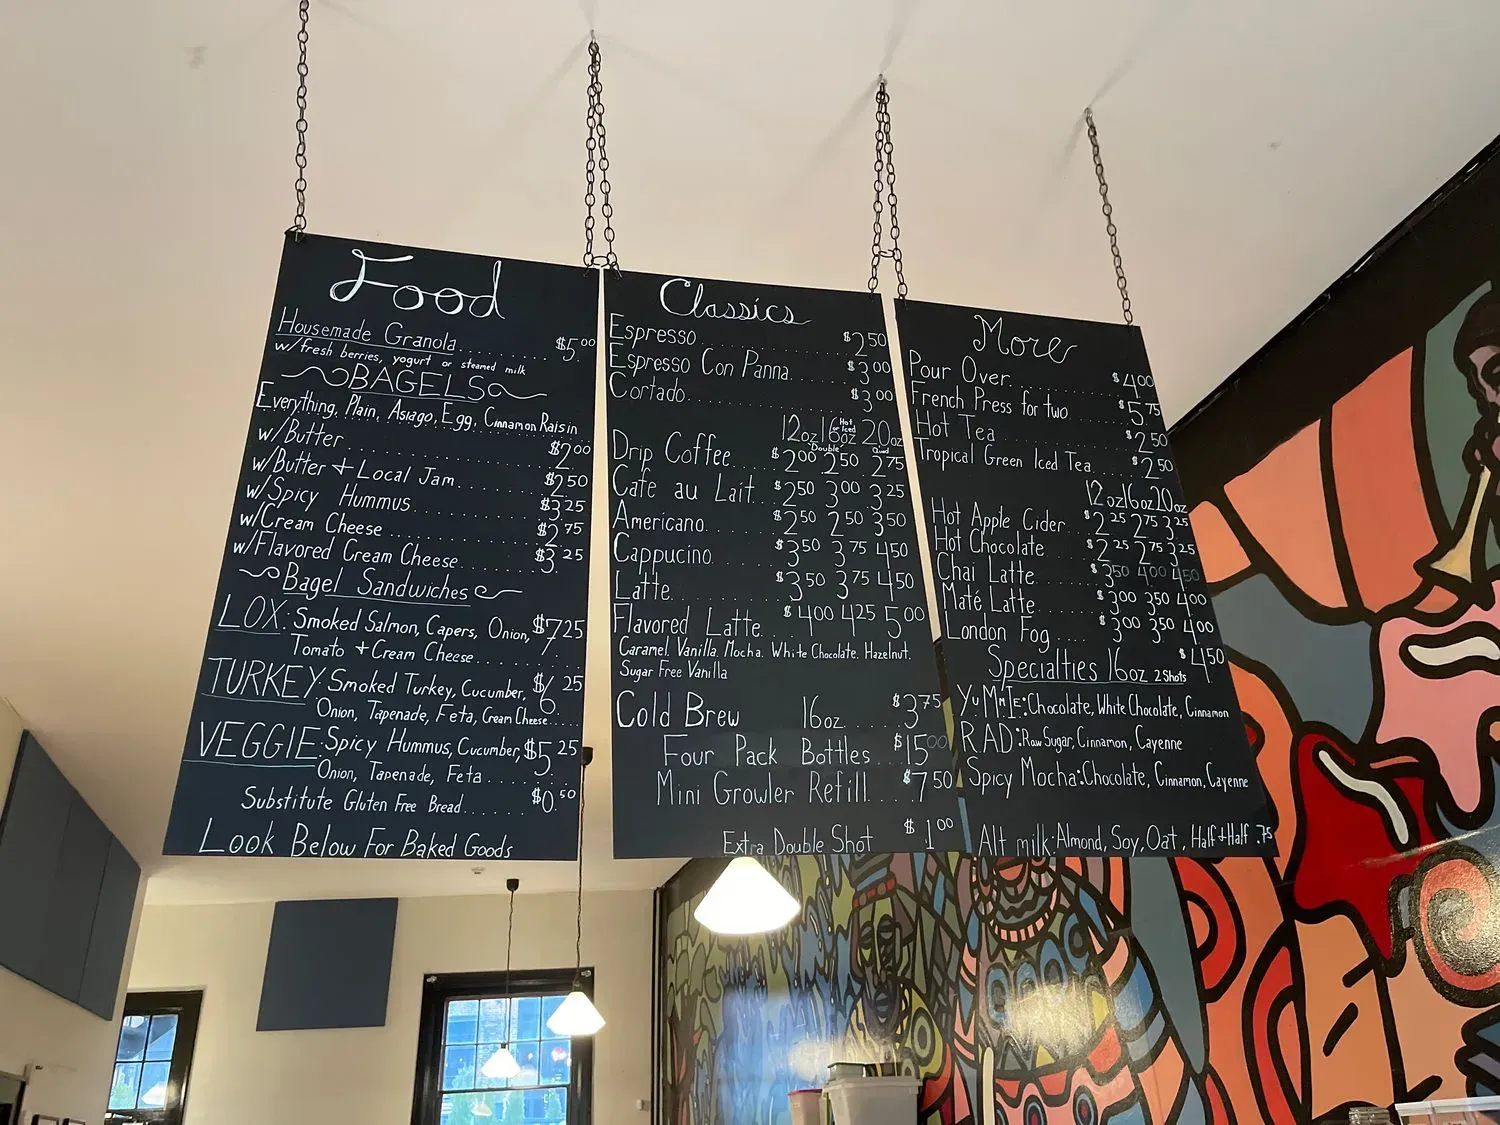 Food
Housemade Granola.......... $5.00
w/fresh berries, yogurt or steamed milk
BAGELS
Everything, Plain, Asiago, Egg, Cinnamon Raisin
w/Butter.......... $2.00
w/Butter + Local Jam.......... $2.50
w/Spicy Hummus.......... $3.25
w/Cream Cheese.......... $2.75
w/Flavored Cream Cheese.......... $3.25
Bagel Sandwiches
LOX: Smoked Salmon, Capers, Onion, $7.25
Tomato + Cream Cheese..........
TURKEY: Smoked Turkey, Cucumber, $6.25
Onion, Tapenade, Feta, Cream Cheese.....
VEGGIE: Spicy Hummus, Cucumber, $5.25
Onion, Tapenade, Feta..........
Substitute Gluten Free Bread.......... $0.50
Look Below For Baked Goods
Classics
Espresso.......... $2.50
Espresso Con Panna.......... $3.00
Cortado.......... $3.00
12oz 16oz Hot or Iced 20oz
Double Quad
Drip Coffee.... $2.00 2.50 2.75
Cafe au Lait.. $2.50 3.00 3.25
Americano....... $2.50 2.50 3.50
Cappucino....... $3.50 3.75 4.50
Latte.......... $3.50 3.75 4.50
Flavored Latte... $4.00 4.25 5.00
Caramel. Vanilla. Mocha. White Chocolate. Hazelnut.
Sugar Free Vanilla
Cold Brew 16oz..... $3.75
Four Pack Bottles $15.00
Mini Growler Refill... $7.50
Extra Double Shot $1.00
More
Pour Over.......... $4.00
French Press for two...... $5.75
Hot Tea.......... $2.50
Tropical Green Iced Tea.... $2.50
12oz 16oz 20oz
Hot Apple Cider.. $2.25 2.75 3.25
Hot Chocolate.... $2.25 2.75 3.25
Chai Latte...... $3.50 4.00 4.50
Maté Latte...... $3.00 3.50 4.00
London Fog.... $3.00 3.50 4.00
Specialties 16oz 2 Shots $4.50
YuMMIE: Chocolate, White Chocolate, Cinnamon
RAD: Raw Sugar, Cinnamon, Cayenne
Spicy Mocha: Chocolate, Cinnamon, Cayenne
Alt milk: Almond, Soy, Oat, Half + Half .75